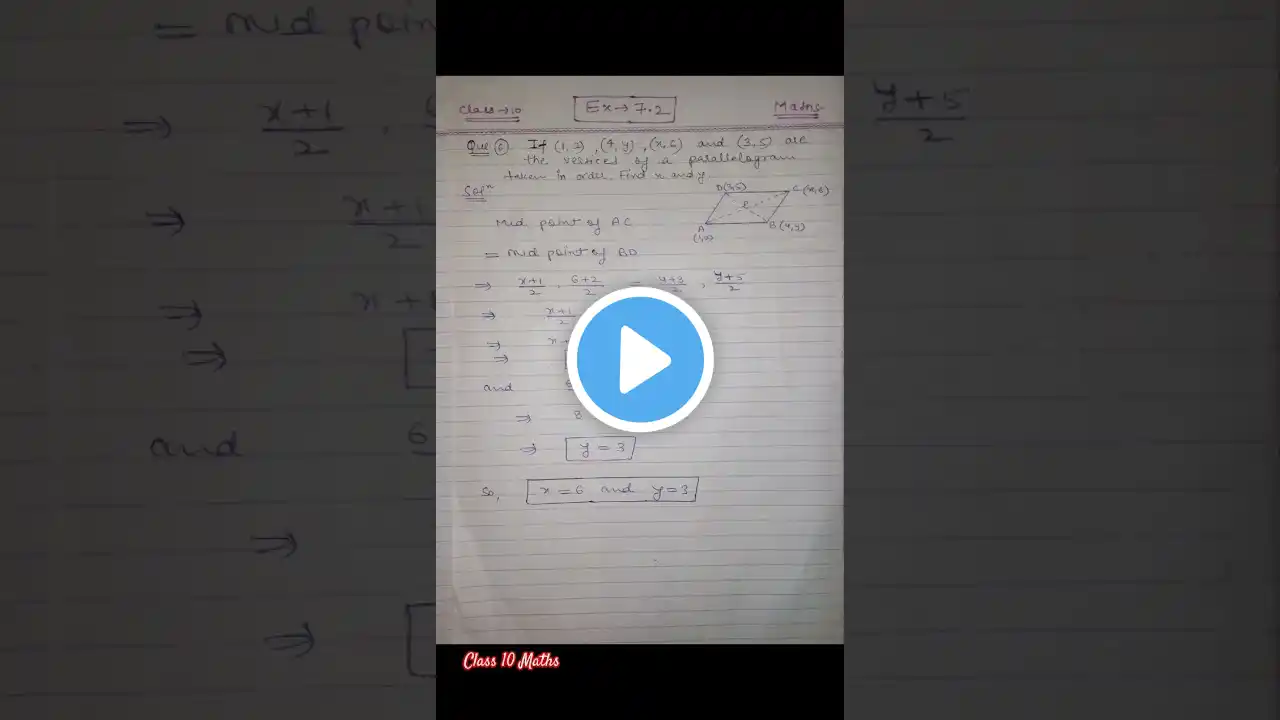 = Mid poin
⇒ x+1/2 , 6
⇒ x+1/2
⇒ x+1
⇒
and 6
⇒
⇒
Class → 10 Ex → 7.2 Maths
Que 6 If (1, 2) , (4, y) , (x, 6) and (3, 5) are
the vertices of a parallelogram
taken in order. Find x and y
Solⁿ
D(3,5) C(x,6)
A B(4,y)
Mid point of AC
= Mid point of BD
⇒ x+1/2 , 6+2/2 = 4+3/2 , y+5/2
⇒ x+1/2
⇒ x+
⇒
and 6
⇒ 8
⇒ y = 3
So, x = 6 and y = 3
y+5/2
Class 10 Maths